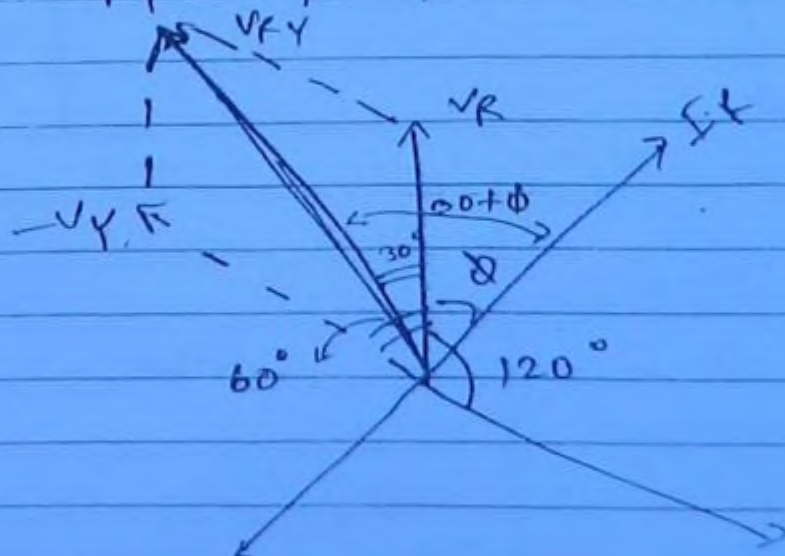 VRY
VR
IR
-VY
30+φ
30°
φ
60°
120°